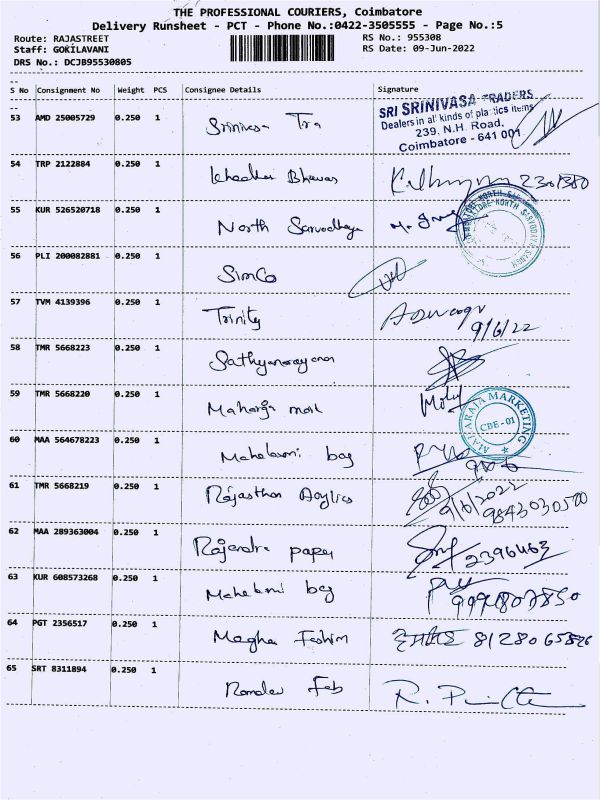 THE PROFESSIONAL COURIERS, Coimbatore
Delivery Runsheet - PCT - Phone No.:0422-3505555 - Page No.:5
Route: RAJASTREET
RS No.: 955308
Staff: GOKILAVANI
RS Date: 09-Jun-2022
DRS No.: DCJB95530805
S No Consignment No Weight PCS Consignee Details Signature
53 AMD 25005729 0.250 1 Srinivasa Tra
SRI SRINIVASA TRADERS
Dealers in all kinds of plastics items
239, N.H. Road,
Coimbatore - 641 001
54 TRP 2122884 0.250 1 Bhavan 2301380
55 KUR 526520718 0.250 1 North Sarvodhaya
56 PLI 200082881 0.250 1 SimCo
57 TVM 4139396 0.250 1 Trinity
9/6/22
58 TMR 5668223 0.250 1 Sathyanarayana
59 TMR 5668220 0.250 1 Maharaja
MAHARAJA MARKETING
CBE-01
60 MAA 564678223 0.250 1 Mahalaxmi bag
61 TMR 5668219 0.250 1 Rajasthan
9/6/2022
9843030500
62 MAA 289363004 0.250 1 Rajendra paper 2396463
63 KUR 608573268 0.250 1 Mahalaxmi bag
64 PGT 2356517 0.250 1 Megha Fashion
65 SRT 8311894 0.250 1 Ramdev Fab